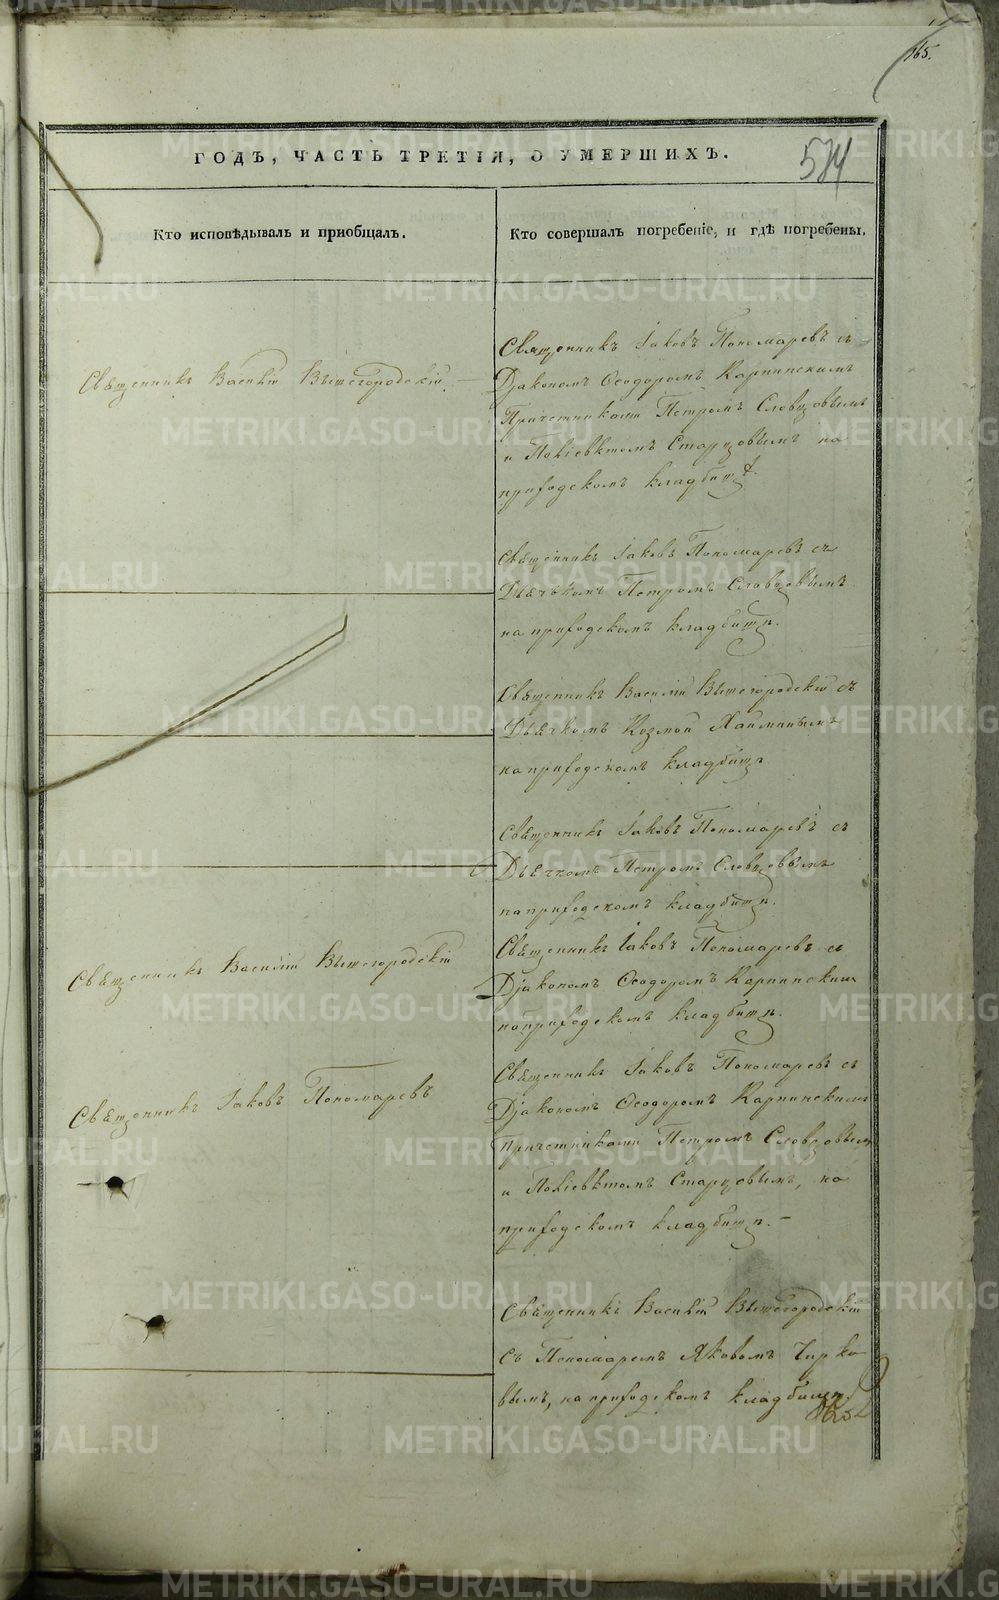 165.
ГОДЪ, ЧАСТЬ ТРЕТІЯ, О УМЕРШИХЪ.
574
Кто исповѣдывалъ и пріобщалъ.
Кто совершалъ погребеніе, и гдѣ погребены.
Священникъ Василій Вышегородскій
Священникъ Іаковъ Пономаревъ съ
Діакономъ Ѳеодоромъ Карпинскимъ
Причетниками Петромъ Словцовымъ
и Поліевктомъ Старцовымъ на
приходскомъ кладбищѣ.
Священникъ Іаковъ Пономаревъ съ
Дьячкомъ Петромъ Словцовымъ
на приходскомъ кладбищѣ.
Священникъ Василій Вышегородскій съ
Дьячкомъ Козмой
на приходскомъ кладбищѣ
Священникъ Іаковъ Пономаревъ съ
Дьячкомъ Петромъ Словцовымъ
на приходскомъ кладбищѣ.
Священникъ Василій Вышегородскій
Священникъ Іаковъ Пономаревъ съ
Діакономъ Ѳеодоромъ Карпинскимъ
на приходскомъ кладбищѣ.
Священникъ Іаковъ Пономаревъ
Священникъ Іаковъ Пономаревъ съ
Діакономъ Ѳеодоромъ Карпинскимъ
Причетниками Петромъ Словцовымъ
и Поліевктомъ Старцовымъ, на
приходскомъ кладбищѣ.-
Священникъ Василій Вышегородскій
съ Пономаремъ Яковомъ Чирко
вымъ, на приходскомъ кладбищѣ.
METRIKI.GASO-URAL.RU